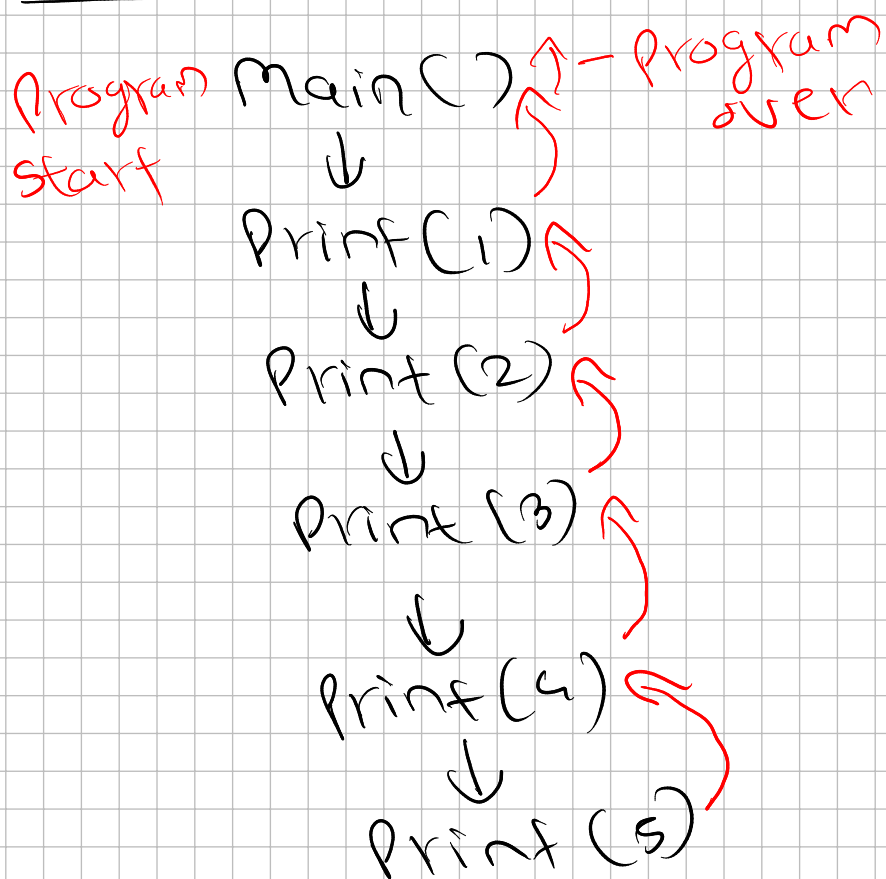 Program
start
Main()
- Program
over
Print(1)
Print(2)
Print(3)
Print(4)
Print(5)